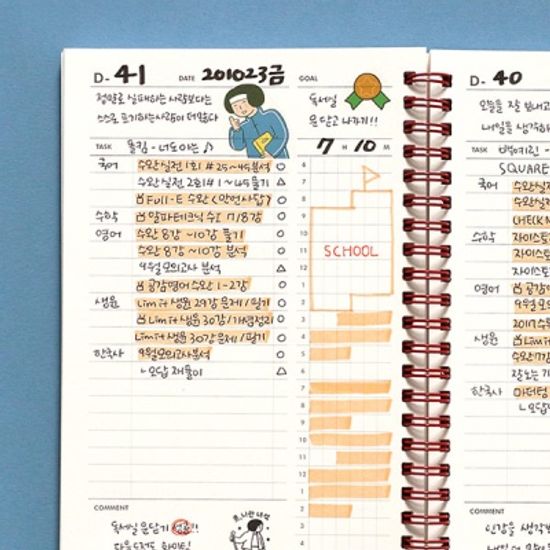 D-41 DATE 201023금 GOAL
정말로 실패하는 사람보다는
스스로 포기하는 사람이 더 많다
독서실
문 닫고 나가기!!
TASK 폴킴 - 너도 아는 ♪ 7H 10M
국어 수완 실전 1회 #25~45분석
수완 실전 2회 #1~45 풀기
Full-E 수완 <안변사답>
수학 알파테크닉 수I 7/8강
영어 수완 8강~10강 풀기
수완 8강~10강 분석
9월 모의고사 분석
공감영어 수완 1-2강
생윤 Limit 생윤 29강 문제/필기
Limit 생윤 30강/개념정리
Limit 생윤 30강 문제/필기
한국사 9월 모의고사 분석
ㄴ오답 재풀이
6
7
8
9
10
11
12
1
2
3
4
5
6
7
8
9
10
11
12
1
2
3
4
SCHOOL
COMMENT
독서실 문 닫기 성공!!
다음 화이팅
D-40
오늘을 잘 보내고
내일을 생각하
TASK 백예린 -
SQUARE
국어 수완실
수완실
CHECK
수학 자이스토
자이스토
자이스토
영어 공감영
9월 모
2017 수
생윤 Limit
수완 7강
잘노는 기
한국사
ㄴ오답
COMMENT
인강을 생각보